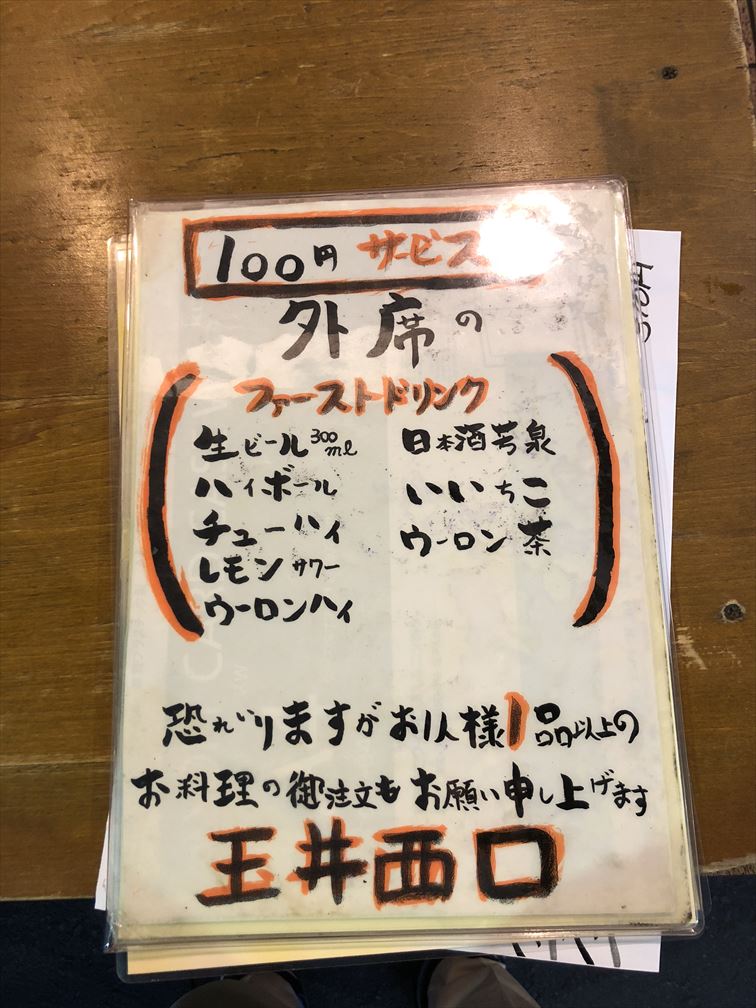 100円 サービス
外席の
ファーストドリンク
生ビール 300ml
ハイボール
チューハイ
レモンサワー
ウーロンハイ
日本酒芳泉
いいちこ
ウーロン茶
恐れいりますがお1人様1品以上の
お料理の御注文もお願い申し上げます
玉井西口